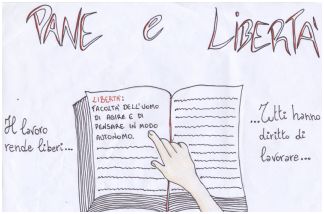 PANE e LIBERTA'
LIBERTÀ:
FACOLTÀ DELL'UOMO
DI AGIRE E DI
PENSARE IN MODO
AUTONOMO.
Il lavoro
rende liberi...
...Tutti hanno
diritto di
lavorare...